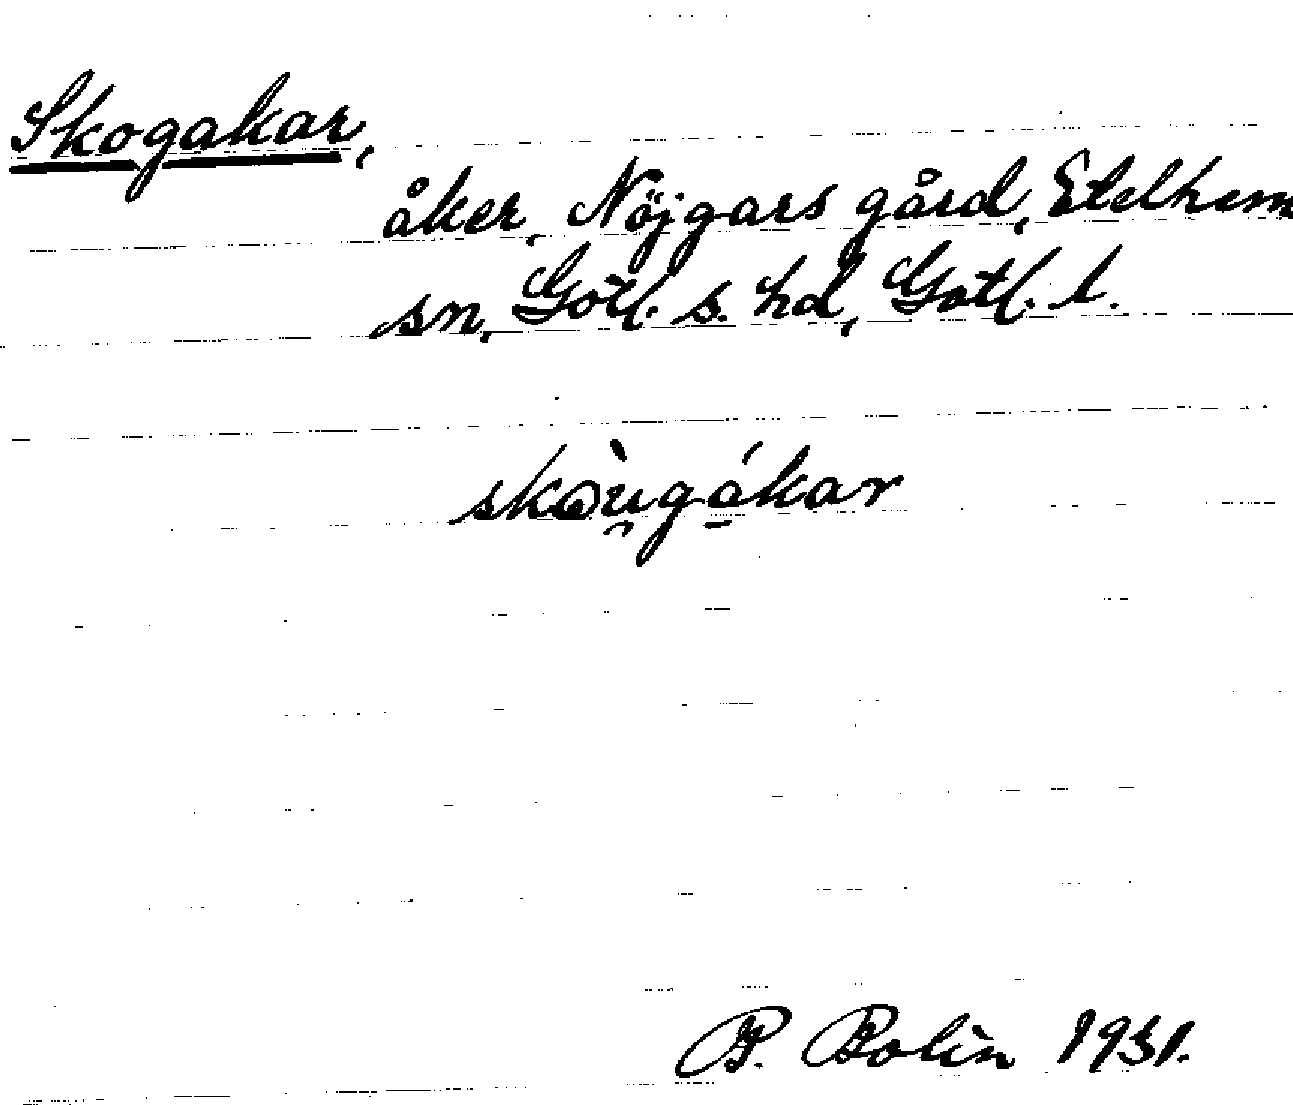 Skogakar,
åker, Nöjgars gård, Etelhem
sn, Gotl. s. hd, Gotl. l.
skòu̯gá̱kar
B. Bolin 1931.